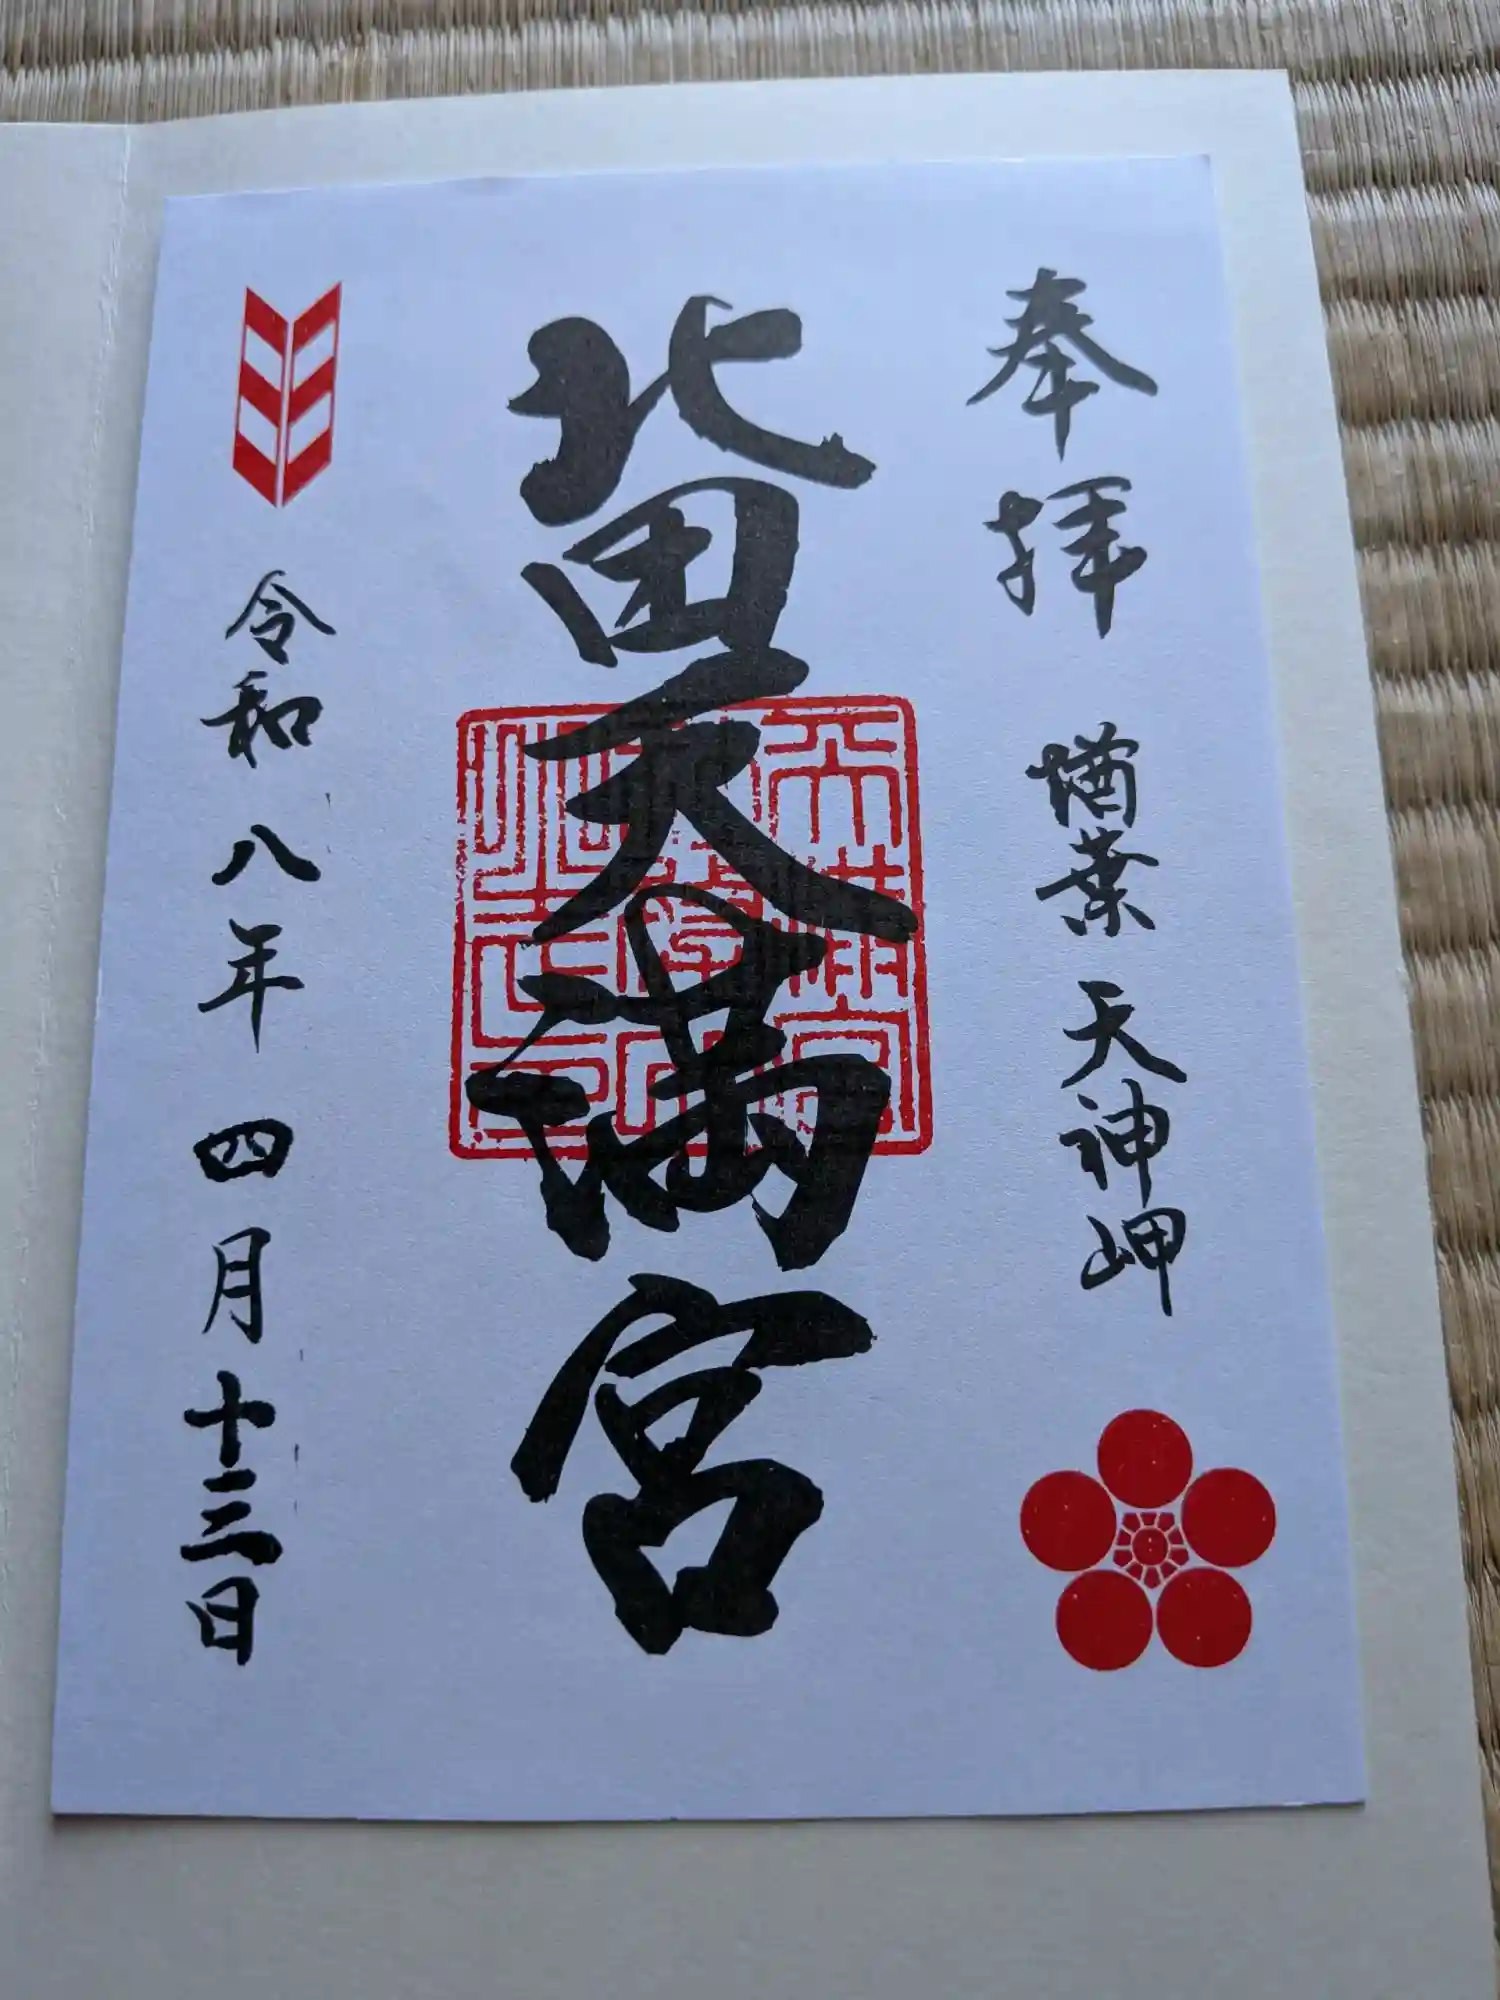 奉拝 楢葉 天神岬
北田天満宮
令和八年 四月十三日